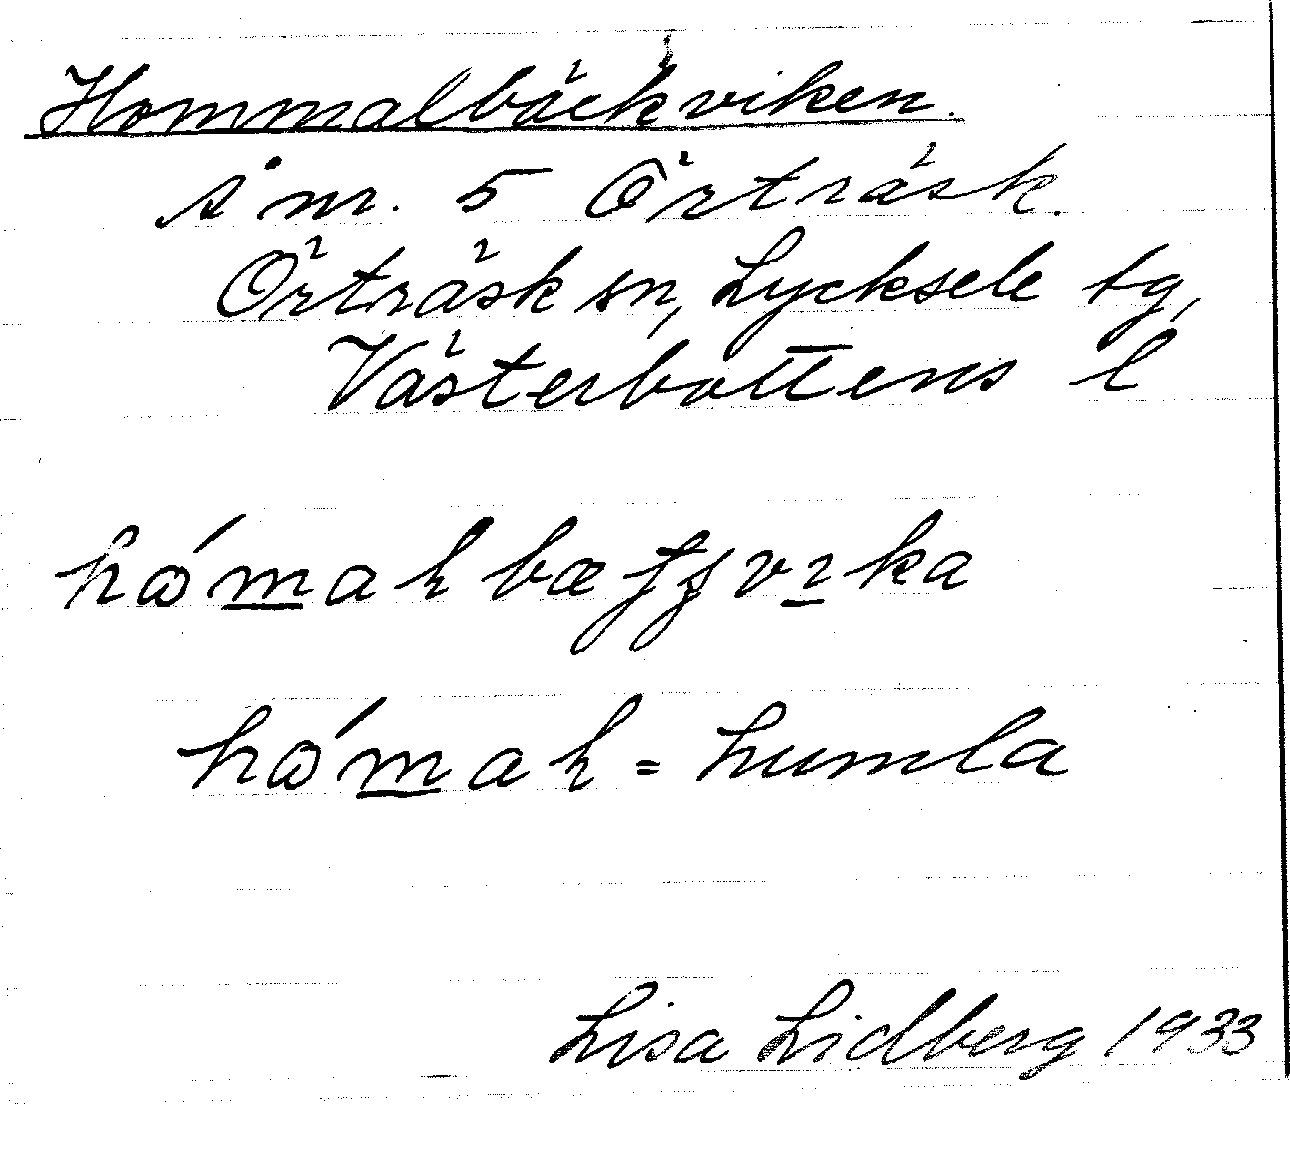 Hommalbäckviken.
i nr. 5 Örträsk.
Örträsk sn, Lycksele tg,
Västerbottens l
= humla
Lisa Lidberg 1933